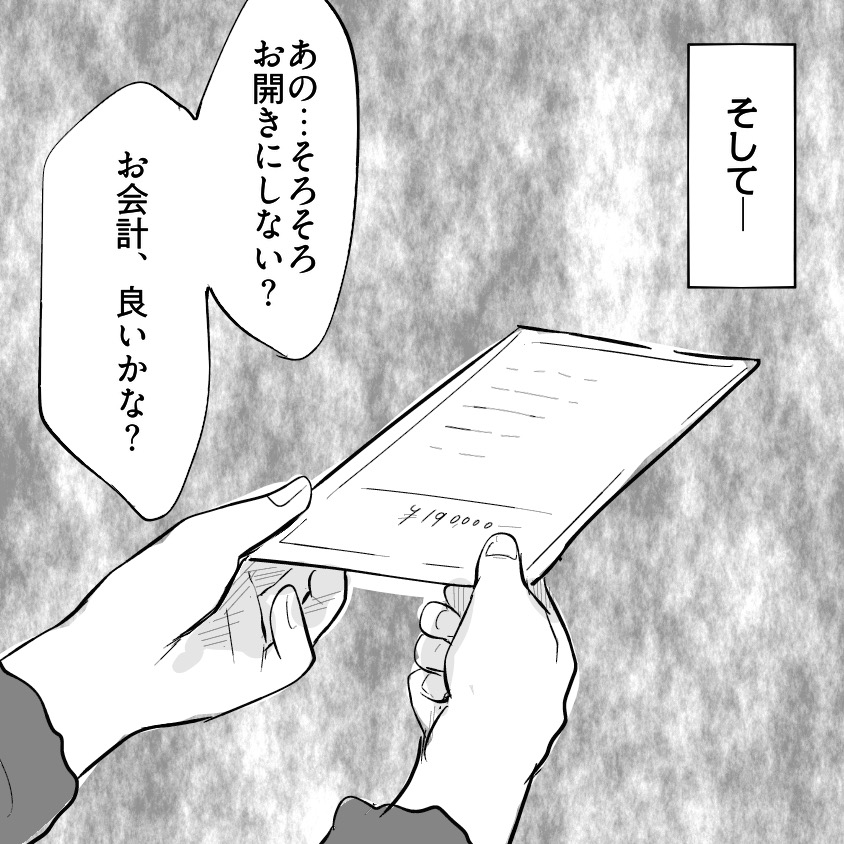 そして―
あの…そろそろ
お開きにしない？
お会計、良いかな？
¥190000